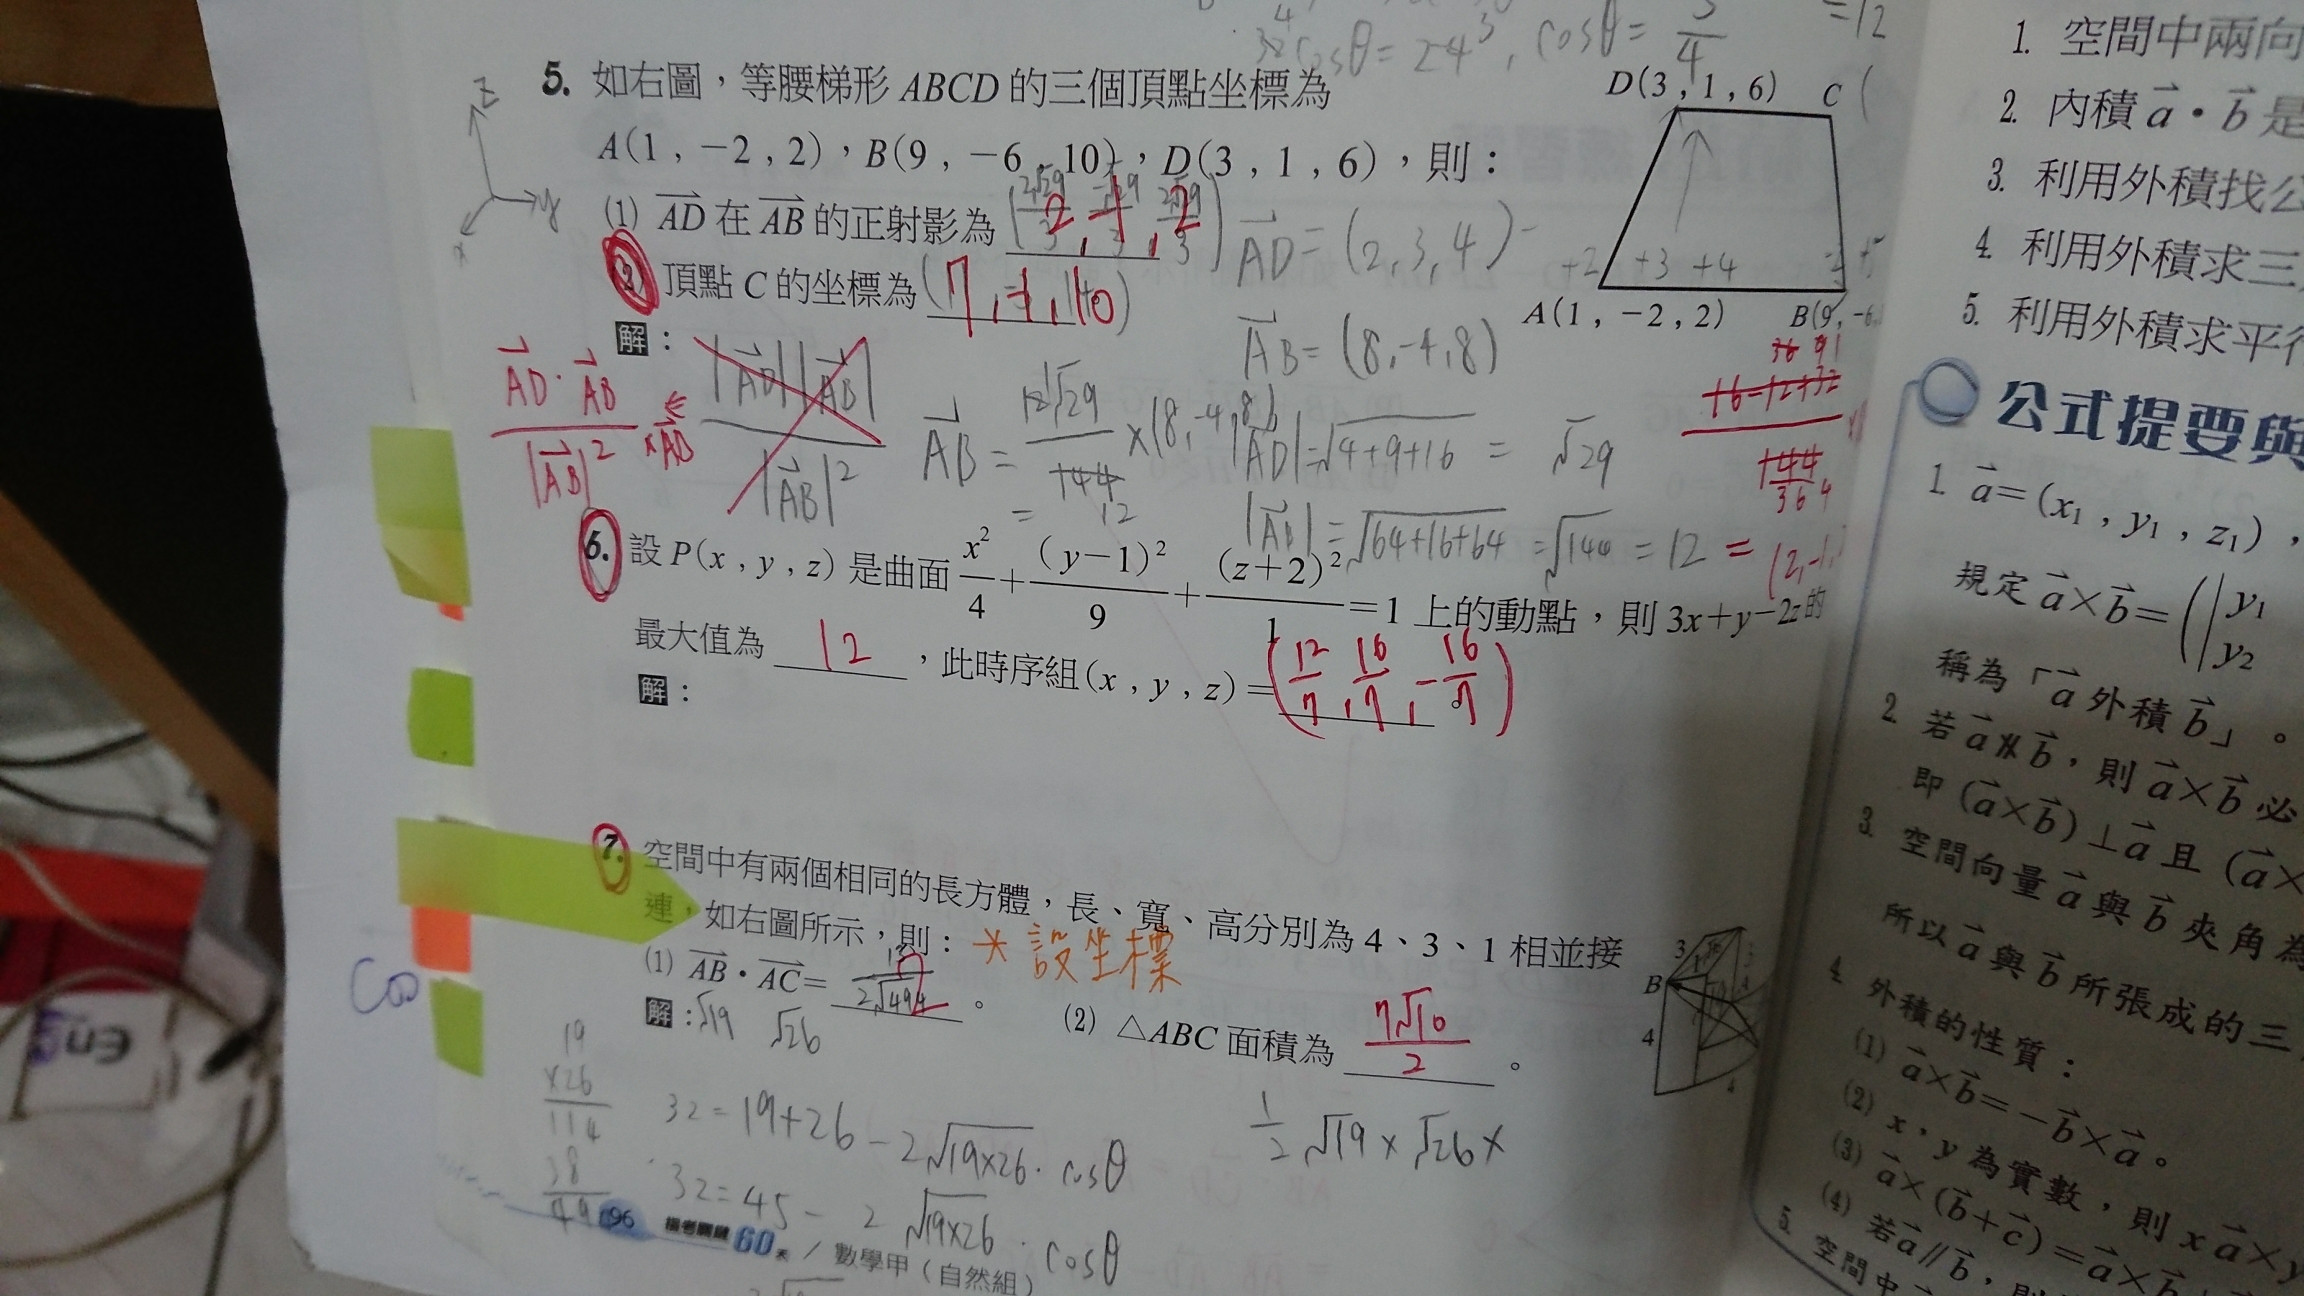 32cosθ = 24, cosθ = 3/4
=12
5. 如右圖，等腰梯形 ABCD 的三個頂點坐標為
A(1，-2，2)，B(9，-6，10)，D(3，1，6)，則：
(1) AD 在 AB 的正射影為 (2, -1, 2)
AD = (2, 3, 4)
(2) 頂點 C 的坐標為 (7, -1, 10)
解：
D(3，1，6) C
+2 +3 +4
A(1，-2，2) B(9，-6
AB = (8, -4, 8)
AD·AB / |AB|² × AB
|AD||AB| / |AB|²
AB = 12√29 / 144 × (8, -4, 8)
|AD| = √4+9+16 = √29
|AB| = √64+16+64 = √144 = 12
16-12+32 / 144
= (2, -1,
z
y
x
6. 設 P(x，y，z) 是曲面 x²/4 + (y-1)²/9 + (z+2)²/1 = 1 上的動點，則 3x+y-2z 的
最大值為 12，此時序組(x，y，z)= (12/7, 16/7, -16/7)
解：
7. 空間中有兩個相同的長方體，長、寬、高分別為 4、3、1 相並接
連，如右圖所示，則：* 設坐標
(1) AB·AC= 2。 (2) △ABC 面積為 7√10/2。
解：√19 √26
3
B
4
19
×26
114
38
494
32 = 19+26 - 2√19×26 · cosθ
32 = 45 - 2√19×26 · cosθ
1/2 √19 × √26 ×
96 指考關鍵60天 / 數學甲（自然組）
1. 空間中兩向
2. 內積 a·b 是
3. 利用外積找公
4. 利用外積求三
5. 利用外積求平行
公式提要與
1. a=(x₁，y₁，z₁)，
規定 a×b=(|y₁
y₂
稱為「a 外積 b」。
2. 若 a∦b，則 a×b 必
即 (a×b)⊥a 且 (a×
3. 空間向量 a 與 b 夾角為
所以 a 與 b 所張成的三
4. 外積的性質：
(1) a×b=-b×a。
(2) x，y 為實數，則 xa×y
(3) a×(b+c)=a×b
(4) 若 a∥b，則
5. 空間中
En